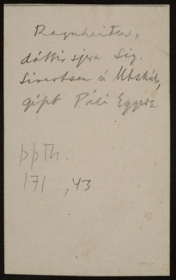 Ragnheiður,
dóttir sjera Sig.
Sivertsen á Útskál,
gift Páli Eggerz
þþTh.
171 , 43